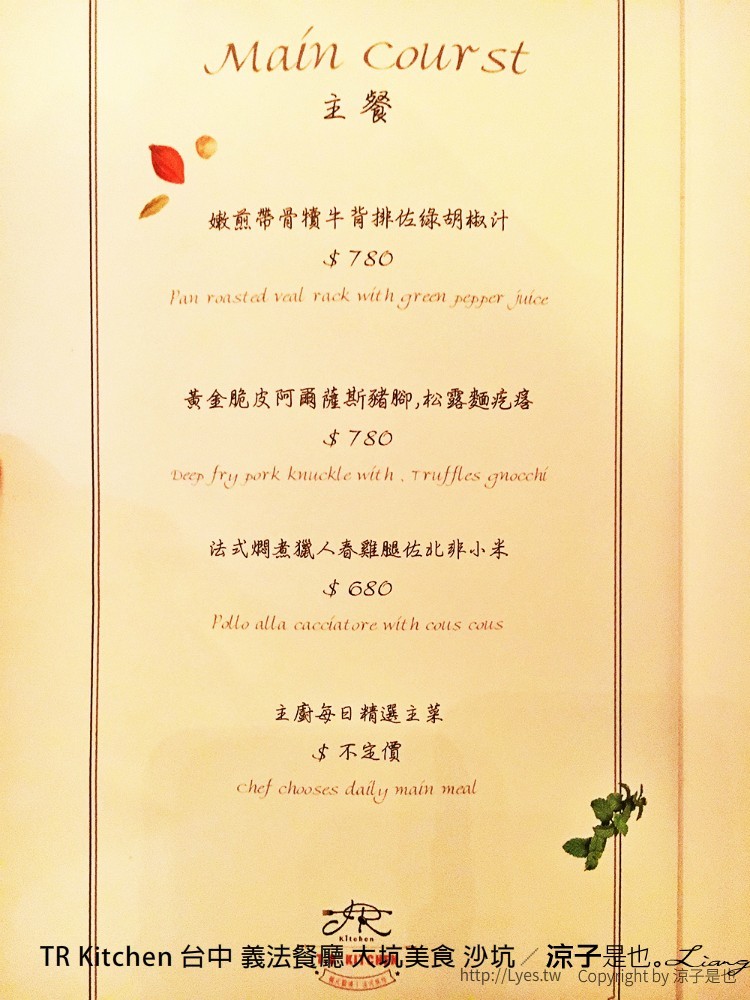 Main Courst
主餐
嫩煎帶骨犢牛背排佐綠胡椒汁
$ 780
Pan roasted veal rack with green pepper juice
黃金脆皮阿爾薩斯豬腳,松露麵疙瘩
$ 780
Deep fry pork knuckle with . Truffles gnocchi
法式燜煮獵人春雞腿佐北非小米
$ 680
Pollo alla cacciatore with cous cous
主廚每日精選主菜
$ 不定價
Chef chooses daily main meal
JR
Kitchen
TR KITCHEN
TR Kitchen 台中 義法餐廳 大坑美食 沙坑／涼子是也。Liang
http://Lyes.tw Copyright by 涼子是也